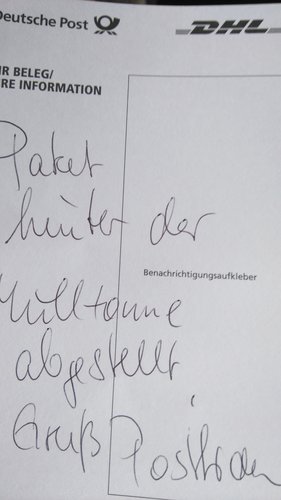 Deutsche Post
DHL
IHR BELEG/
IHRE INFORMATION
Paket
hinter der
Benachrichtigungsaufkleber
Mülltonne
abgestellt
Gruß